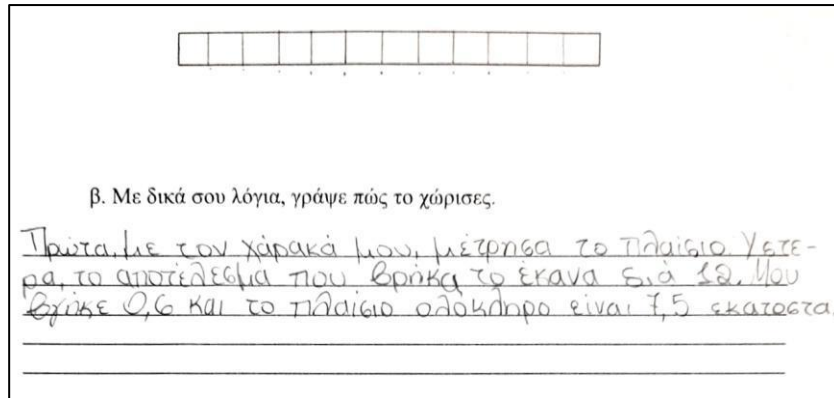 β. Με δικά σου λόγια, γράψε πώς το χώρισες.
Πρώτα, με τον χάρακά μου, μέτρησα το πλαίσιο. Υστε-
ρα, το αποτέλεσμα που βρήκα το έκανα διά 12. Μου
βγήκε 0,6 και το πλαίσιο ολόκληρο είναι 7,5 εκατοστα.